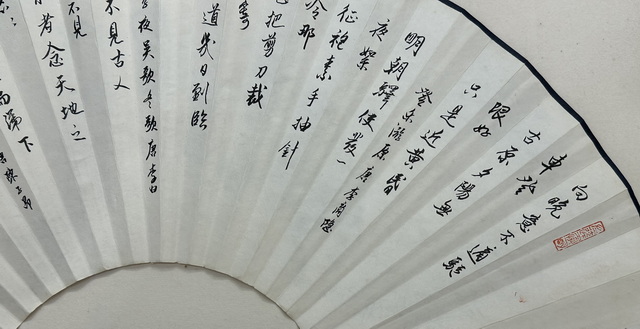 向晚意不適驅
車登
古原夕陽無
限好
只是近黃昏
登樂遊原 唐 李商隱
明朝驛使發一
夜絮
征袍素手抽針
冷那
把剪刀裁
道幾日到臨
夜吳歌冬歌 唐李白
不見古人
不見
者念天地之
而涕下
陳子昂